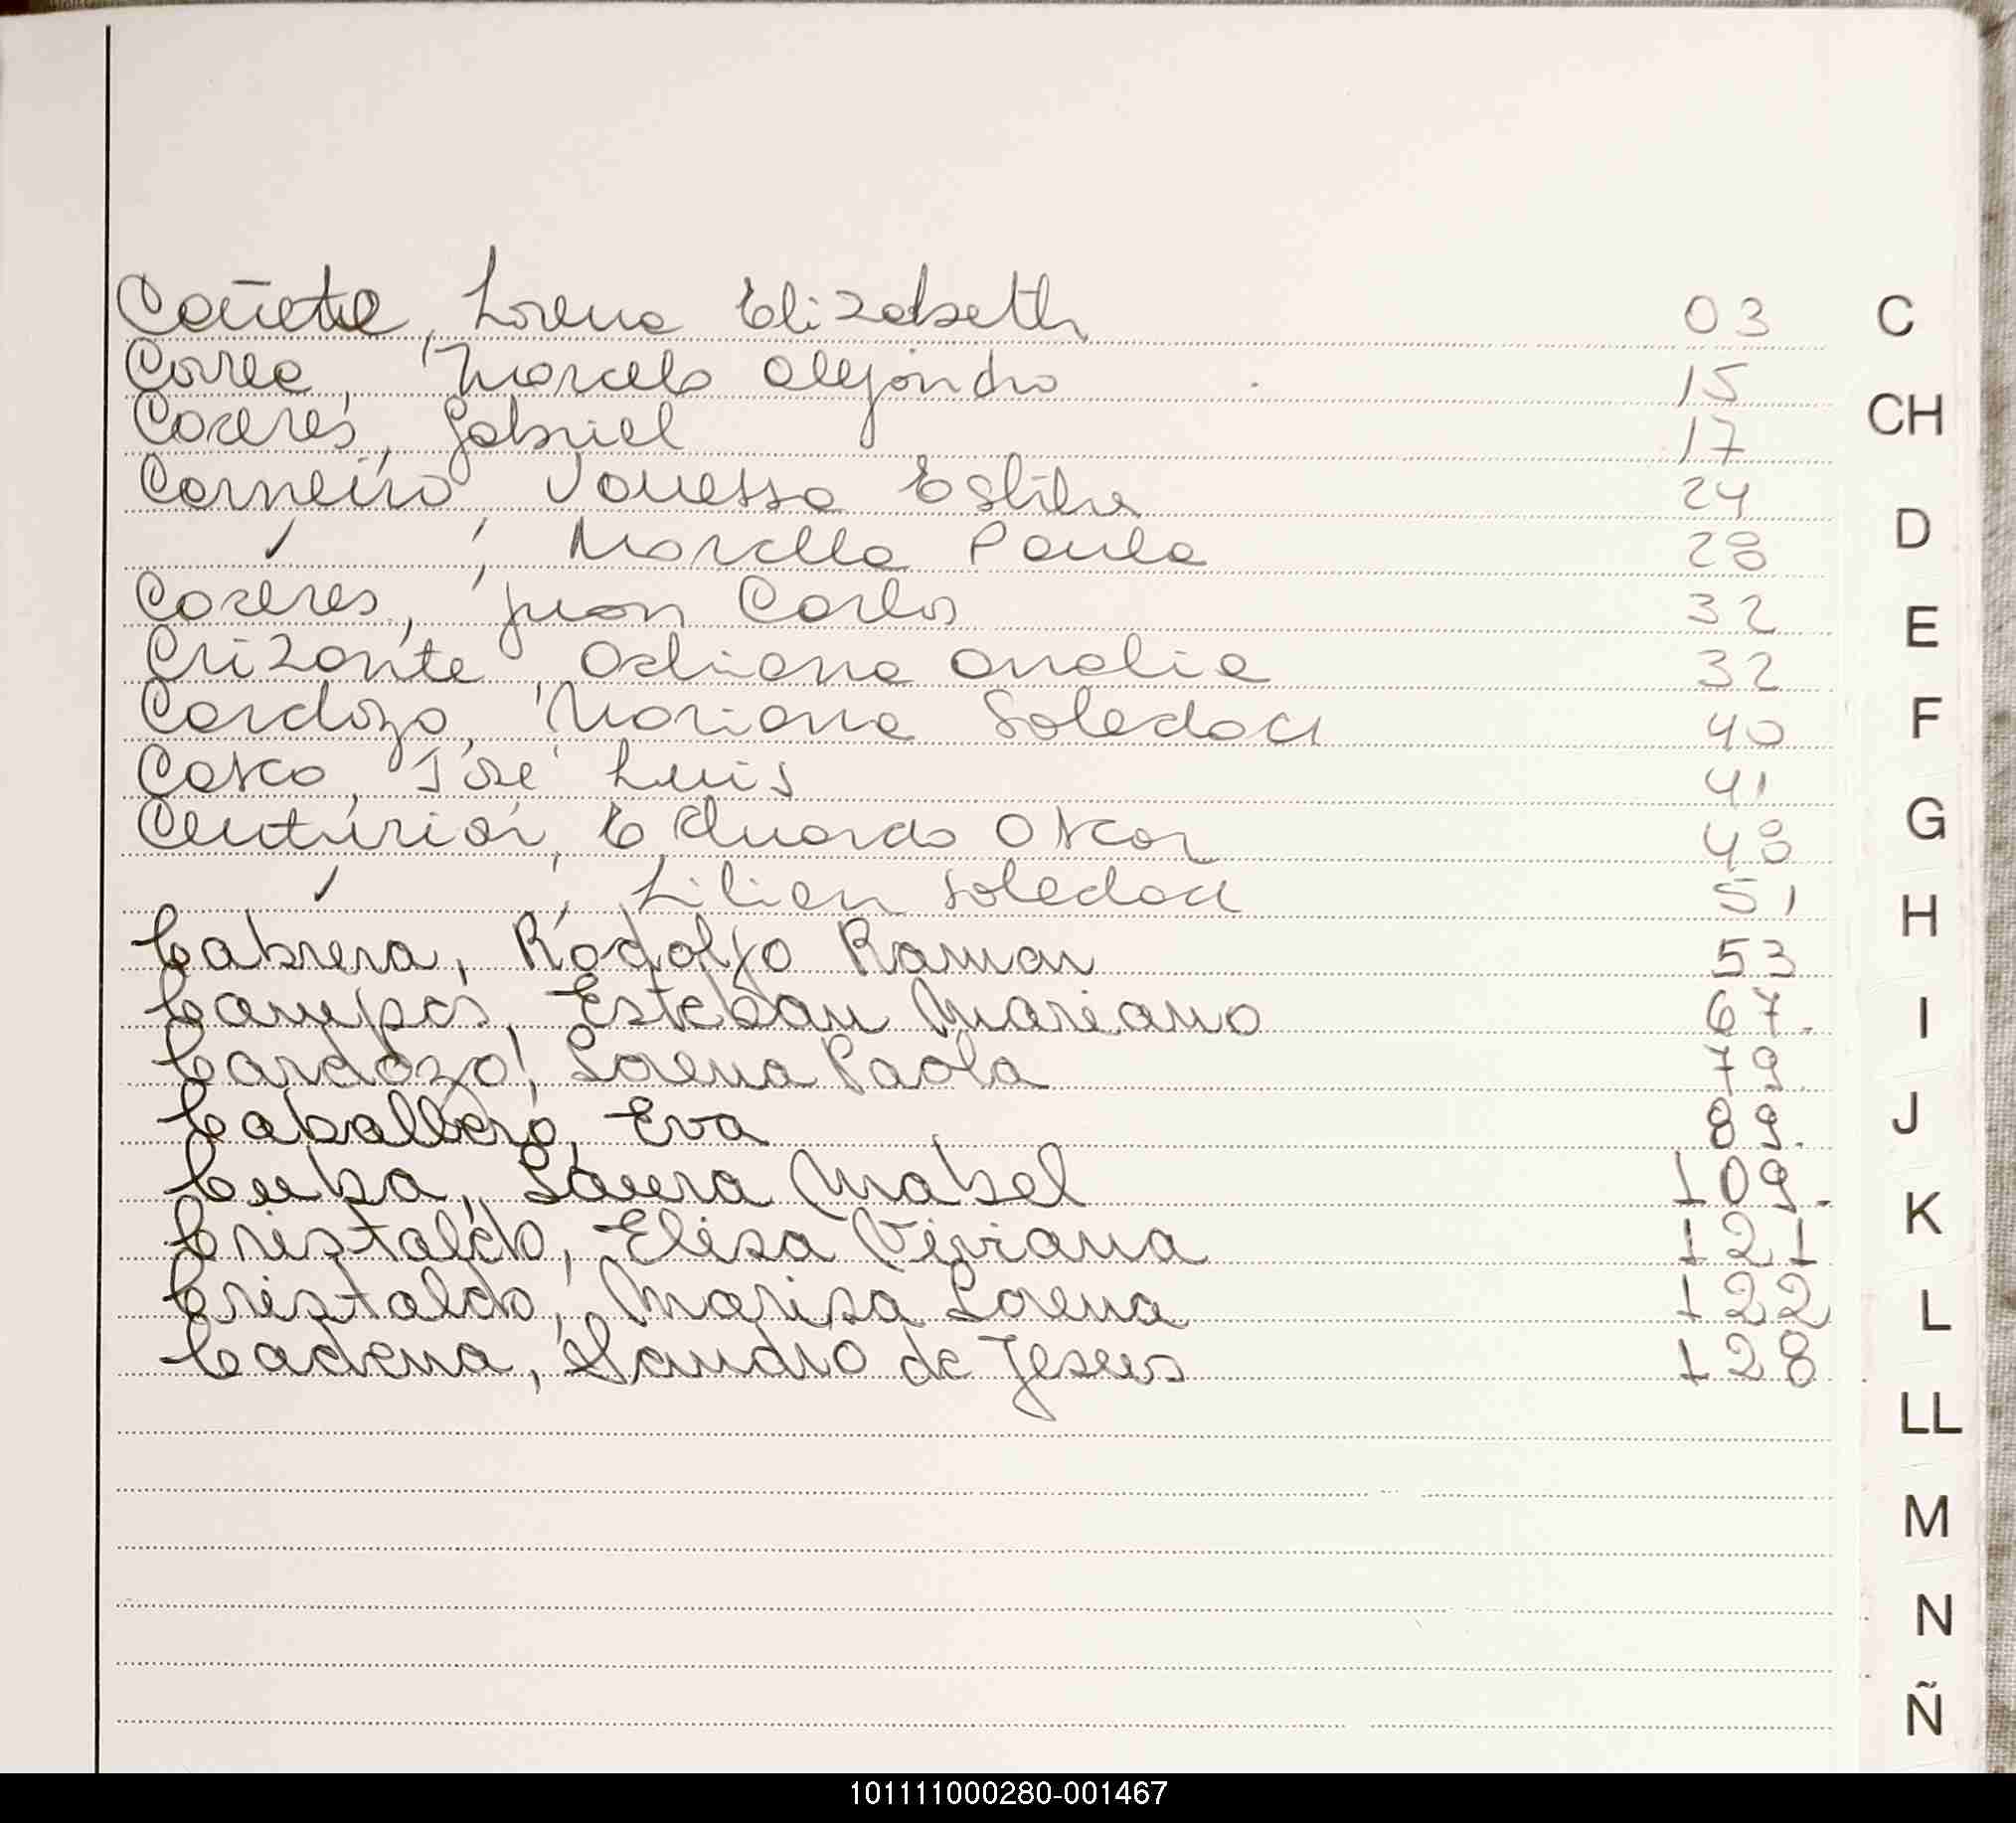 Cañete, Lorena Elizabeth 03 C
Correa, Marcelo Alejandro 15
CH
Caceres, Gabriel 17
Carneiro, Vanessa 24
✓ , Marcela Paula 28 D
Caceres, Juan Carlos 32 E
Crizante, Adriana Analia 32
Cardozo, Mariana Soledad 40 F
Casco, José Luis 41
Centurión, Eduardo Oscar 48 G
✓ , Lilian Soledad 51 H
Cabrera, Rodolfo Ramon 53
Campos, Esteban Mariano 67. I
Cardozo, Lorena Paola 79.
Caballero, Eva 89. J
Cuba, Laura Mabel 109. K
Cristaldo, Elisa Viviana 121
Cristaldo, Marisa Lorena 122 L
Cadena, Claudio de Jesus 128
LL
M
N
Ñ
101111000280-001467